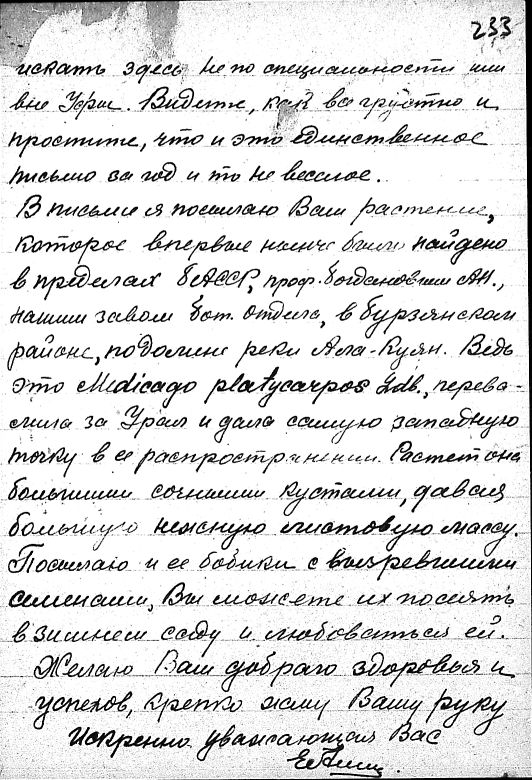 233
искать здесь не по специальности или
вне Уфы. Видите, как все грустно и
простите, что и это единственное
письмо за год и то не веселое.
В письме я посылаю Вам растение,
которое впервые нынче было найдено
в пределах БАССР, проф. Богдановым АН.,
нашим завом бот. отдела, в бурзянском
районе, по долине реки Ала-Куян. Ведь
это Medicago platycarpos Ldb., перева-
лила за Урал и дала самую западную
точку в ее распространении. Растет она
большими сочными кустами, давая
большую нежную листовую массу.
Посылаю и ее бобики с вызревшими
семенами, Вы можете их посеять
в зимнем саду и любоваться ей.
Желаю Вам доброго здоровья и
успехов, крепко жму Вашу руку
Искренно уважающая Вас